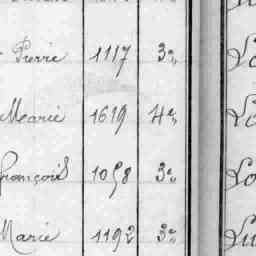 Pierre 1117 3e
Marie 1619 4e
François 1058 3e
Marie 1192 3e